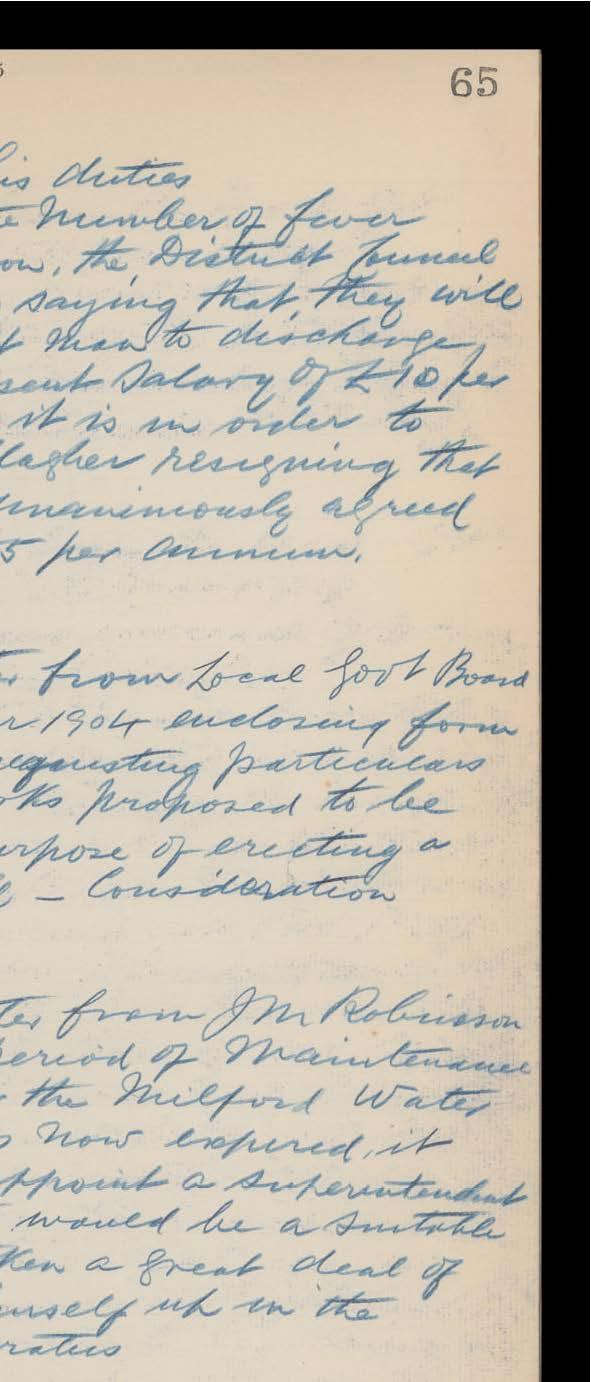 65
his duties
number of fever
on, the District Council
saying that they will
t man to discharge
sent Salary of £10 per
it is in order to
llagher resigning that
unanimously agreed
5 per annum.
from Local Govt Board
r 1904 enclosing form
requesting particulars
oks proposed to be
urpose of erecting a
– Consideration
ter from J M Robinson
period of Maintenance
the Milford Water
s now expired, it
appoint a superintendent
would be a suitable
ken a great deal of
imself up in the
ratus